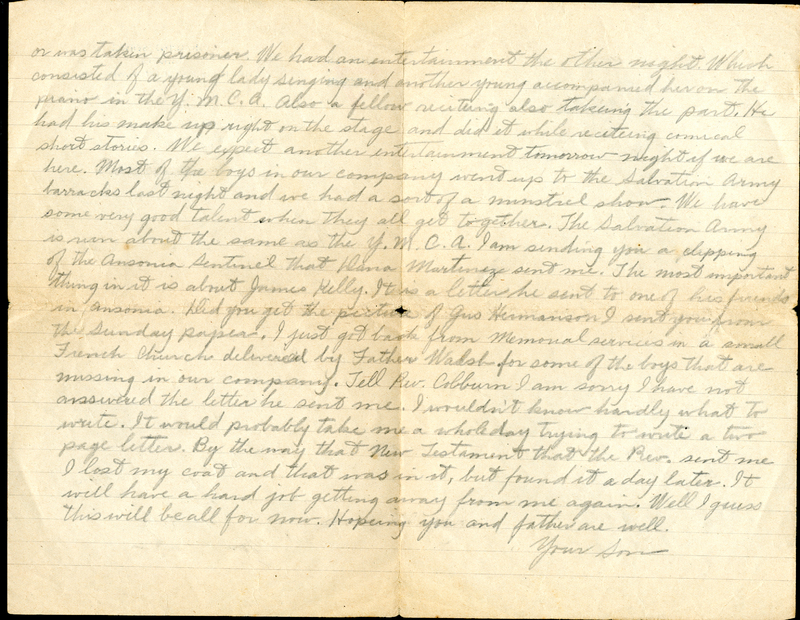 or was taken prisoner. We had an entertainment the other night. Which
consisted of a young lady singing and another young accompanied her on the
piano in the Y.M.C.A. Also a fellow reciting also takeing the part. He
had his make up right on the stage and did it while receteing comical
short stories. We expect another entertainment tomorrow night if we are
here. Most of the boys in our company went up to the Salvation Army
barracks last night and we had a sort of a minstrel show. We have
some very good talent when they all get together. The Salvation Army
is run about the same as the Y.M.C.A. I am sending you a clipping
of the Ansonia Sentinel that Dana Martinez sent me. The most important
thing in it is about James Kelly. It is a letter he sent to one of his friends
in Ansonia. Did you get the picture of Gus Hermanson I sent you from
the Sunday paper. I just got back from Memorial services in a small
French Church delivered by Father Walsh for some of the boys that are
missing in our company. Tell Rev. Colburn I am sorry I have not
answered the letter he sent me. I wouldn't know hardly what to
write. It would probably take me a whole day trying to write a two
page letter. By the way that New Testament that the Rev. sent me
I lost my coat and that was in it, but found it a day later. It
will have a hard job getting away from me again. Well I guess
this will be all for now. Hopeing you and father are well.
Your Son